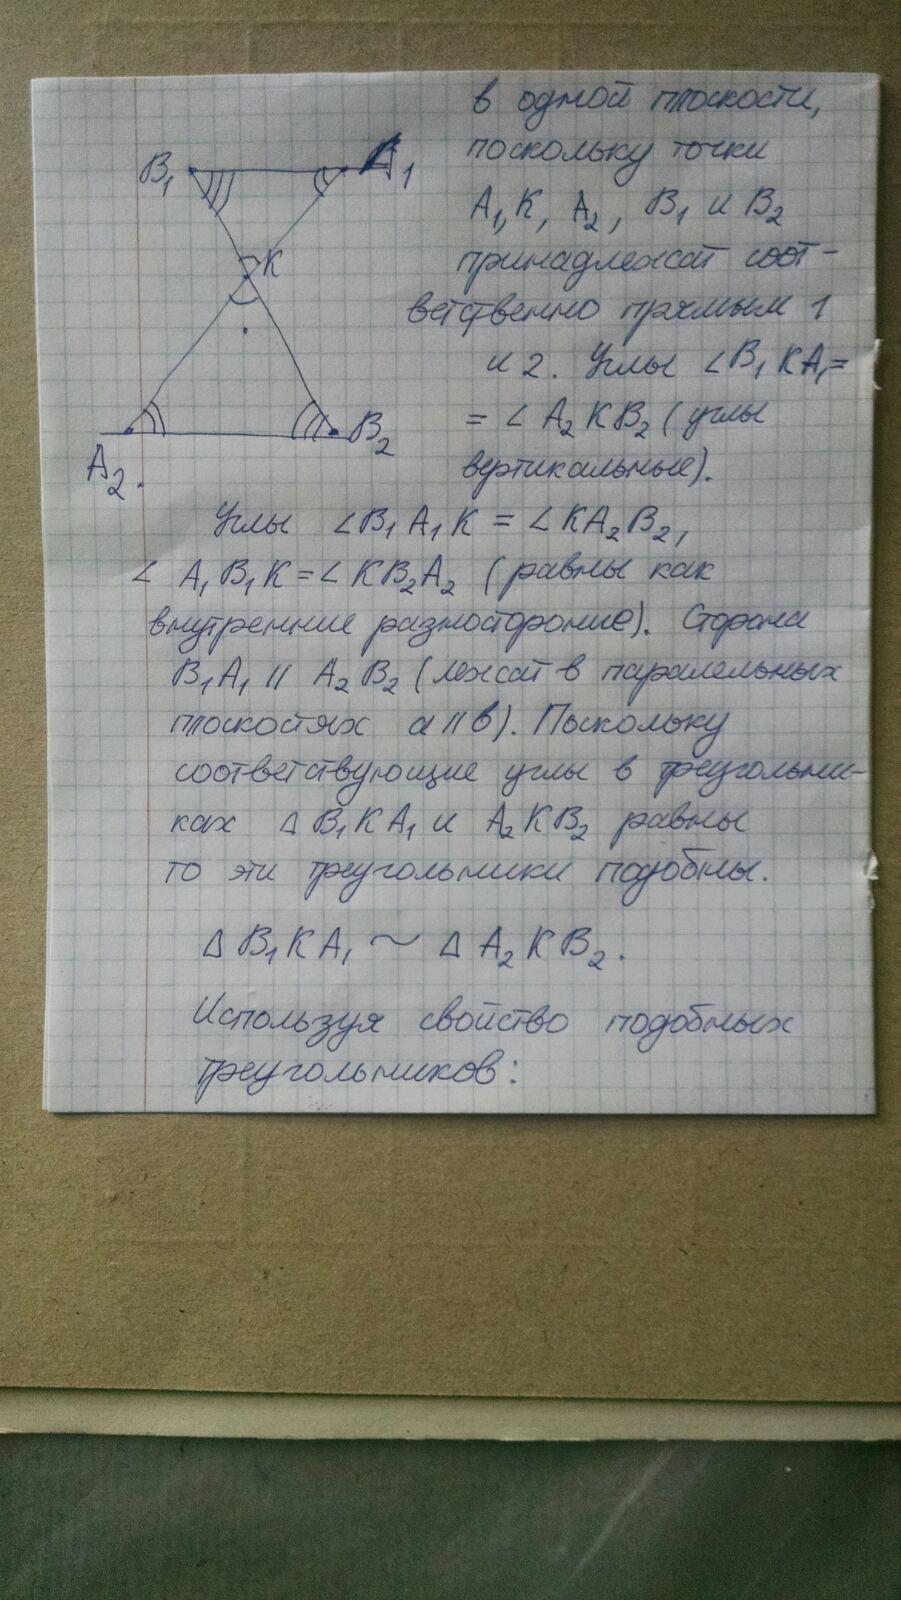 в одной плоскости,
поскольку точки
A₁, K, A₂, B₁ и B₂
принадлежат соот-
ветственно прямым 1
и 2. Углы ∠B₁KA₁=
= ∠A₂KB₂ (углы
вертикальные).
B₁
A₁
K
A₂.
B₂
Углы ∠B₁A₁K = ∠KA₂B₂,
∠A₁B₁K = ∠KB₂A₂ (равны как
внутренние разносторонние). Сторона
B₁A₁ || A₂B₂ (лежат в паралельных
плоскостях a || b). Поскольку
соответствующие углы в треугольни-
ках Δ B₁KA₁ и A₂KB₂ равны
то эти треугольники подобны.
Δ B₁KA₁ ~ Δ A₂KB₂.
Используя свойство подобных
треугольников: